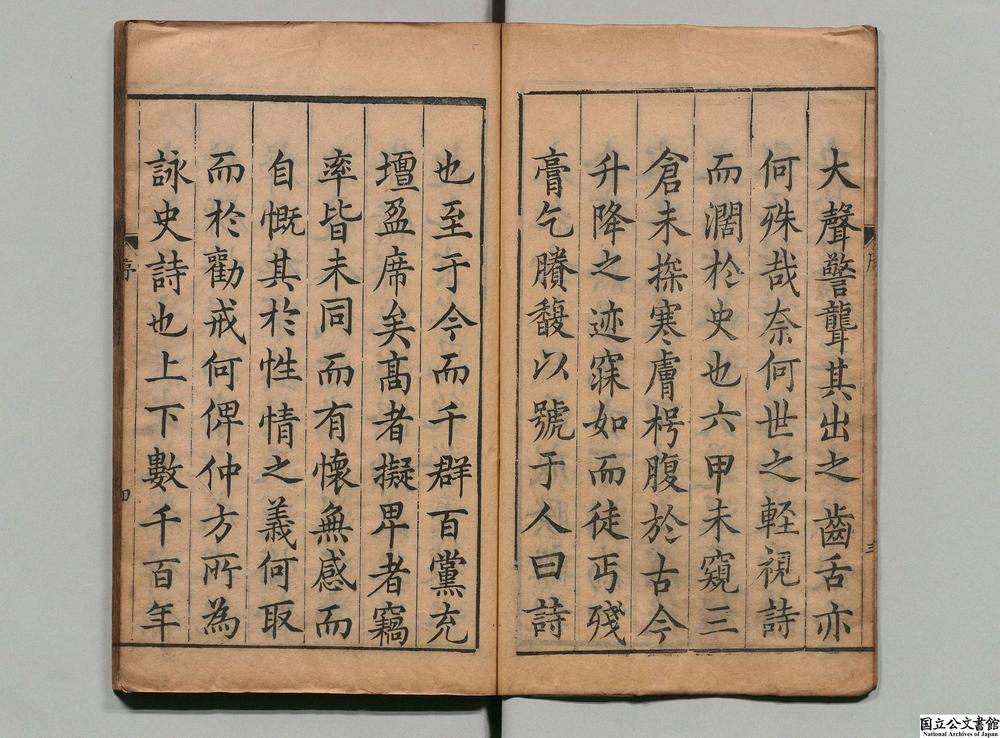 大聲警聾其出之齒舌亦
何殊哉奈何世之輕視詩
而濶於史也六甲未窺三
倉未探寒膚枵腹於古今
升降之迹寐如而徒丐殘
膏乞賸馥以號于人曰詩
也至于今而千群百黨充
壇盈席矣髙者擬畀者竊
率皆未同而有懷無感而
自慨其於性情之義何取
而於勸戒何俾仲方所為
詠史詩也上下數千百年
序
三
序
四
国立公文書館
National Archives of Japan